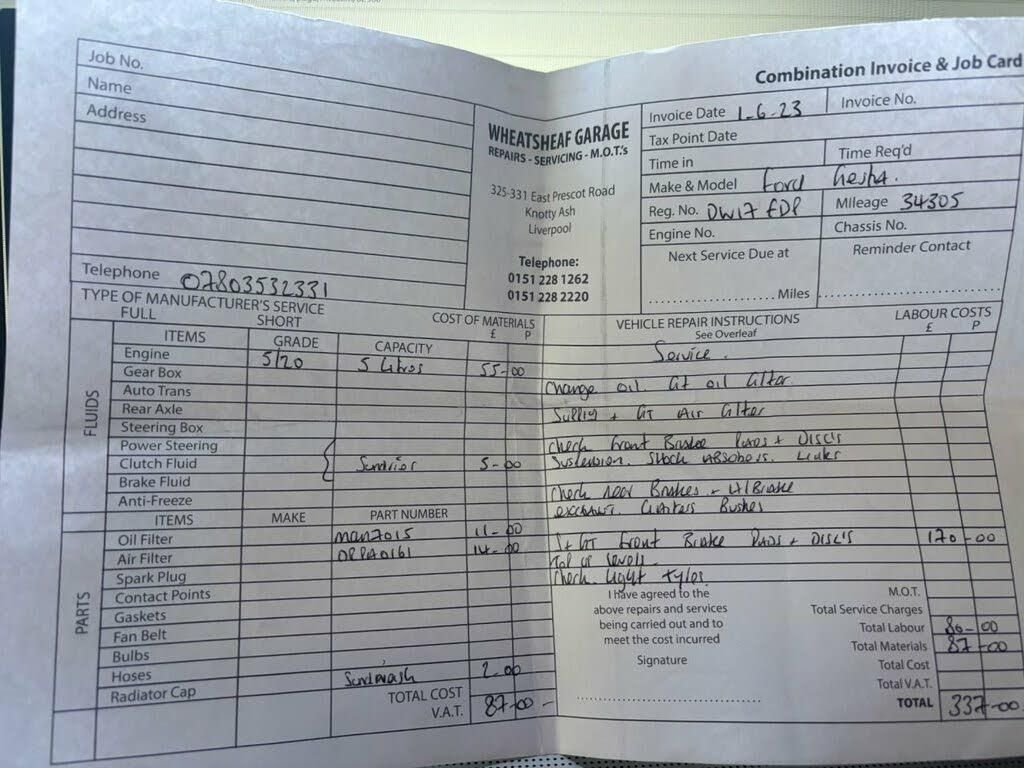 Combination Invoice & Job Card
Job No.
Name
Address
Telephone 07803532331
WHEATSHEAF GARAGE
REPAIRS - SERVICING - M.O.T.'s
325-331 East Prescot Road
Knotty Ash
Liverpool
Telephone:
0151 228 1262
0151 228 2220
Invoice Date 1-6-23 Invoice No.
Tax Point Date
Time in Time Req'd
Make & Model Ford
Reg. No. DW17 EDP Mileage 34305
Engine No. Chassis No.
Next Service Due at Reminder Contact
Miles
TYPE OF MANUFACTURER'S SERVICE
FULL SHORT COST OF MATERIALS
£ P
ITEMS GRADE CAPACITY
FLUIDS
Engine 5/20 5 Litres 55-00
Gear Box
Auto Trans
Rear Axle
Steering Box
Power Steering
Clutch Fluid 5-00
Brake Fluid
Anti-Freeze
ITEMS MAKE PART NUMBER
PARTS
Oil Filter 11-00
Air Filter 14-00
Spark Plug
Contact Points
Gaskets
Fan Belt
Bulbs
Hoses 2-00
Radiator Cap
TOTAL COST 87-00 -
V.A.T.
VEHICLE REPAIR INSTRUCTIONS LABOUR COSTS
See Overleaf £ P
Service.
Change oil. oil filter
+ Air filter
Check front Brake Pads + Disc's
Suspension. Shock Absobers. Links
Check rear Brakes + H/Brake
Bushes
front Brake Pads + Disc's 170-00
levels.
Check light tyres.
I have agreed to the
above repairs and services
being carried out and to
meet the cost incurred
Signature
M.O.T.
Total Service Charges
Total Labour 80-00
Total Materials 87-00
Total Cost
Total V.A.T.
TOTAL 337-00